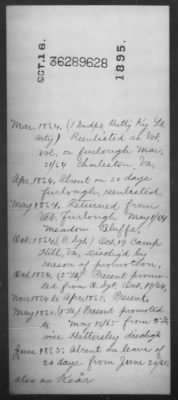 OCT. 16.
1895.
36289628
Mar. 1864. (1 Indpt Batty Ky Lt
Arty) Reenlisted as Vet.
vol. on furlough Mar.
21/64 Charleston, Va,
Apr. 1864. Absent on 20 days
furlough reenlisted.
May 1864. Returned from
Vet. furlough May 9/64
Meadow Bluffs.
Oct. 1864. (O. Sgt) Oct, 19 Camp
Hill, Va, Dischgd by
reason of promotion.
Oct. 1864. (2" Lt) Present promo-
ted from O. Sgt Oct, 19/64.
Nov. 1864 to Apr. 1865. Present.
May 1865. (1" Lt) Present promoted
May 12/65 from 2" Lt,
vice Hattersley dischgd
June 1865. Absent on leave of
20 days from June 29/65;
also as Rear